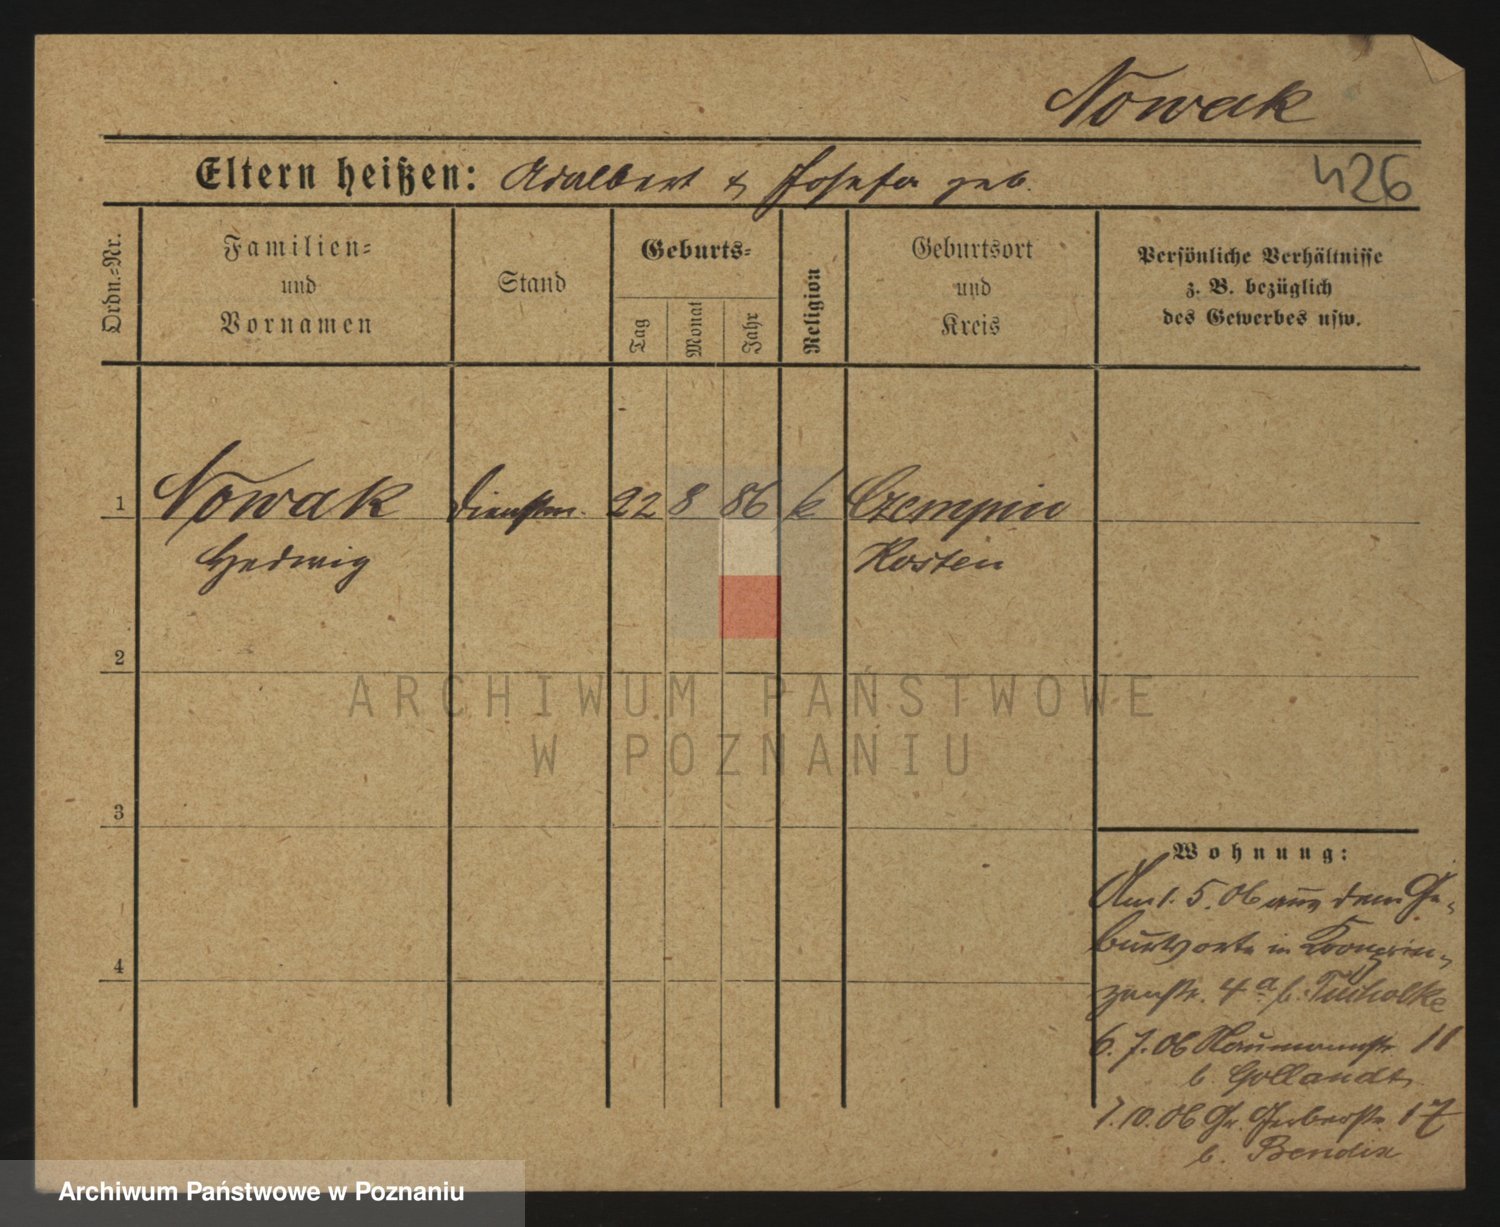 Nowak
Eltern heißen: Adalbert & Josefa geb.
426
Ordn.=Nr.
Familien=
und
Vornamen
Stand
Geburts=
Tag
Monat
Jahr
Religion
Geburtsort
und
Kreis
Persönliche Verhältnisse
z. B. bezüglich
des Gewerbes usw.
1 Nowak Dienstm. 22 8 86 k. Czempin
Hedwig Kosten
2
3
4
Wohnung:
Am 1. 5. 06 aus dem Ge-
burtsorte in Kronprin-
zenstr. 4a b. Tucholke
6. 7. 06 Naumannstr. 11
b. Gollandt
1. 10. 06 Gr. Gerberstr. 17
b. Bendix
ARCHIWUM PAŃSTWOWE
W POZNANIU
Archiwum Państwowe w Poznaniu